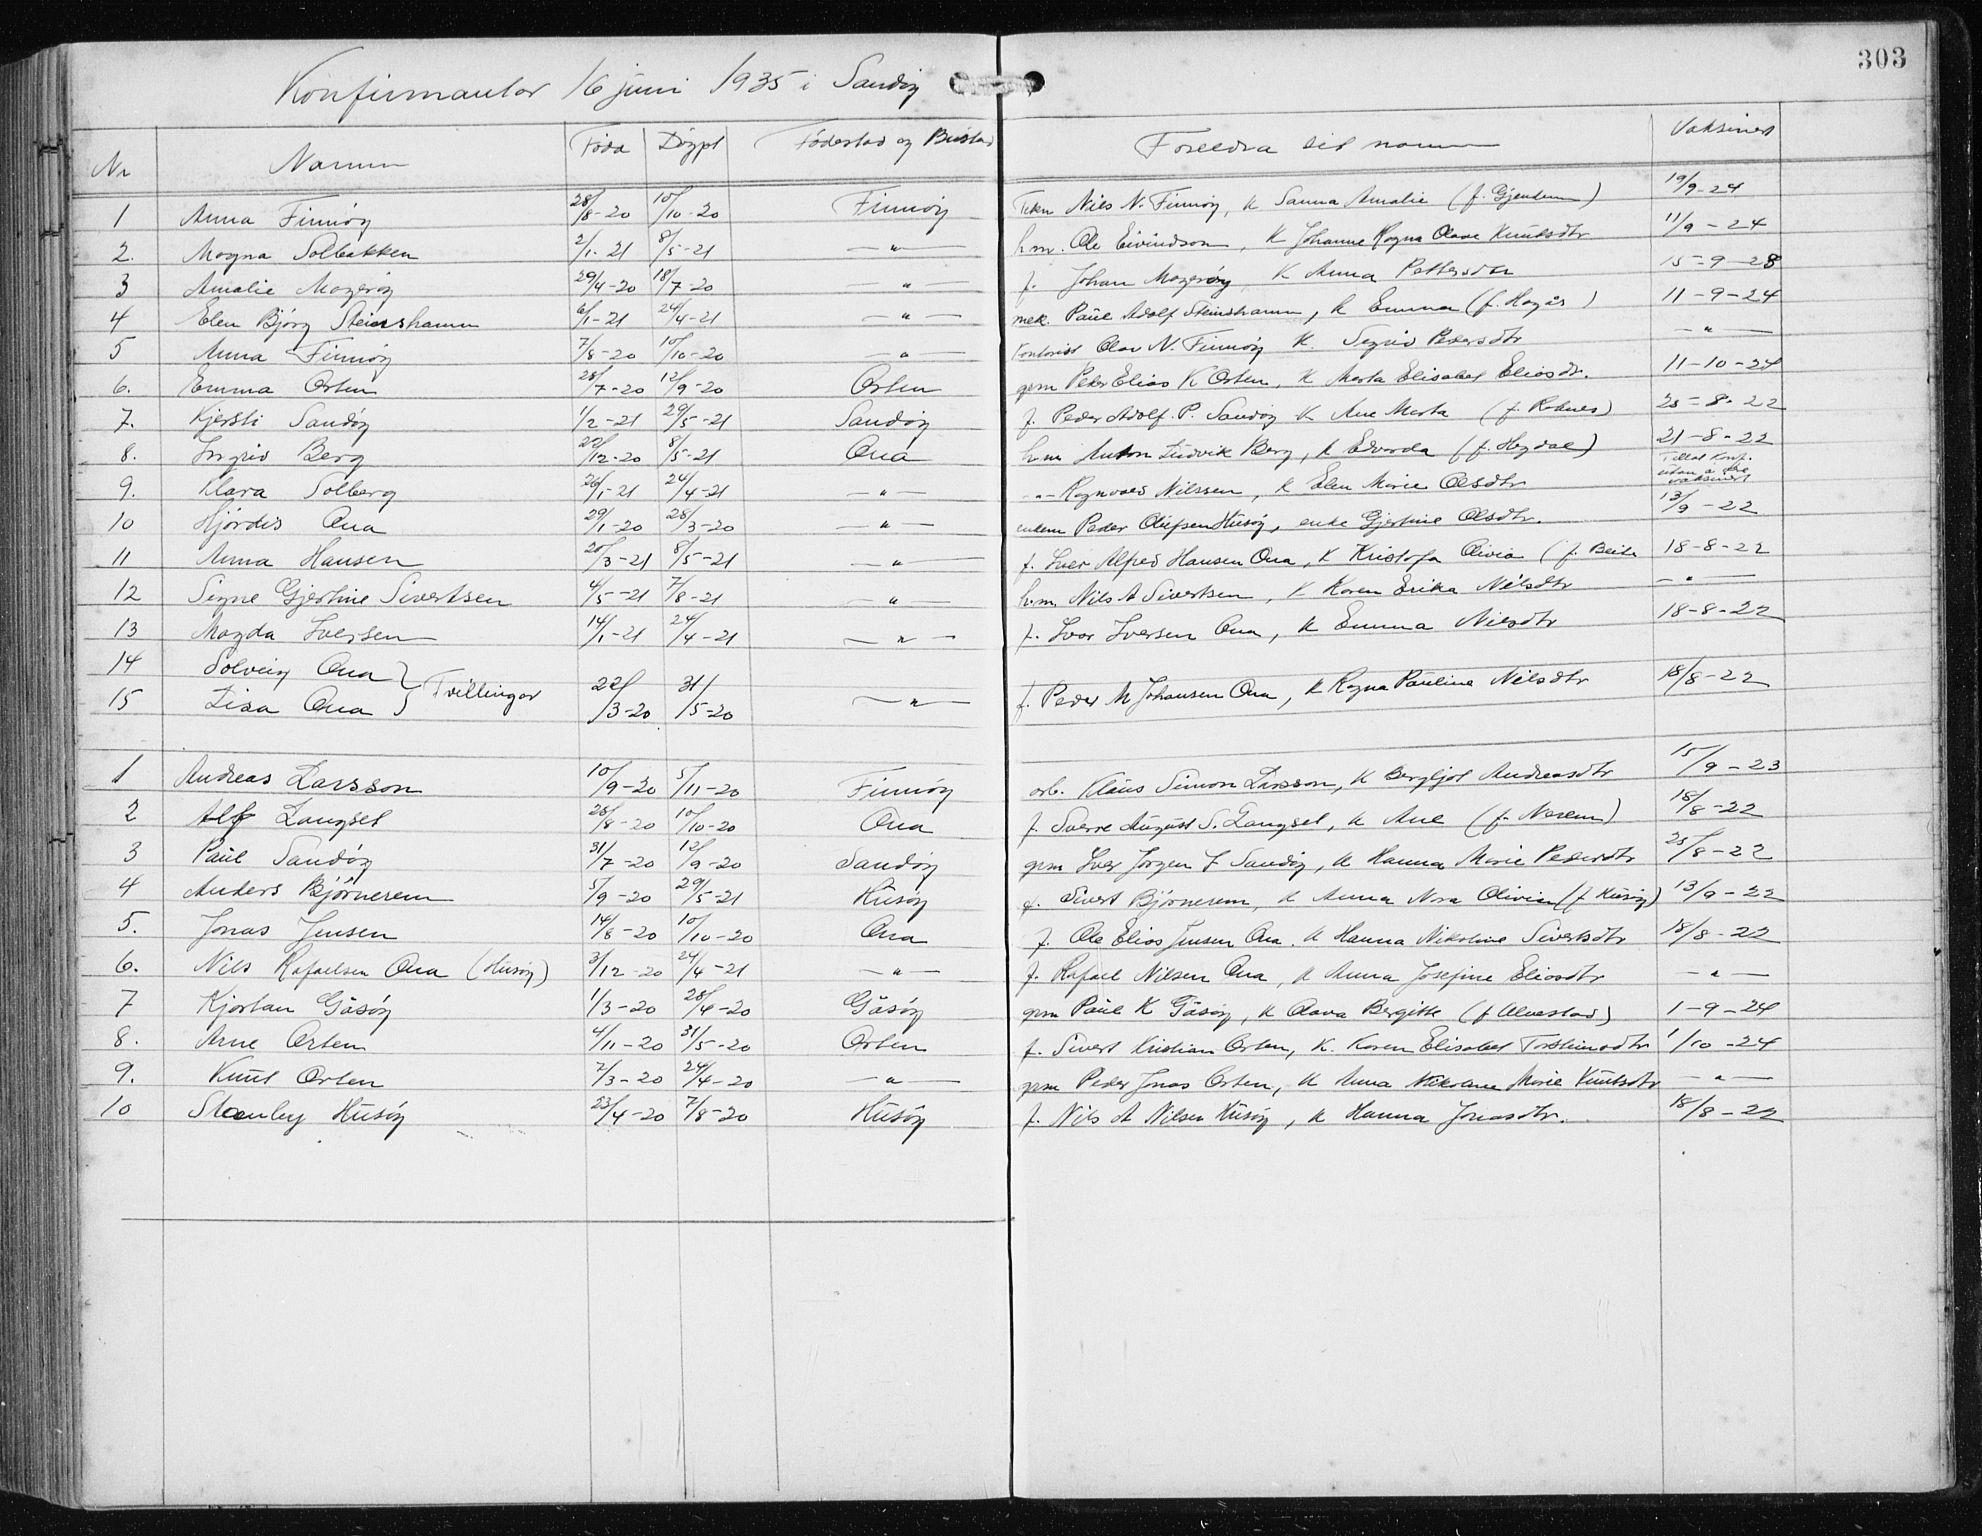 303
Konfirmantar 16 juni 1935 i Sandøy
Nr Namn Född Döypt Födestad og Bustad Foreldra sit namn Vaksinert
1 Anna Finnöy 28/8-20 10/10-20 Finnöy Nils N. Finnöy, k Sanna Amalie (f. Gjendem) 19/9-24
2. Magna Solbakken 2/1-21 8/5-21 —"— h.m. Ole Eivindson, k Johanne Ragna Olava Knutsdtr 11/9-24
3 Amalie Magerøy 29/4-20 18/7-20 —"— f. Johan Magerøy, k Anna Pettersdtr 15-9-28
4 Elen Bjørg Steinshamn 6/1-21 24/4-21 —"— mek. Paul Adolf Steinshamn, k Emma (f. Hagås) 11-9-24
5 Anna Finnöy 7/8-20 10/10-20 —"— Kontorist Olav N. Finnöy k. Sigrid Pedersdtr —"—
6. Emma Orten 28/7-20 12/9-20 Orten grm Peder Elias K Orten, k Marta Elisabet Eliasdtr. 11-10-24
7. Kjersti Sandöy 1/2-21 29/5-21 Sandöy f. Peder Adolf. P. Sandöy k Ane Marta (f. Raknes) 25-8-22
8. Ingrid Berg 22/12-20 8/5-21 Ona h.m Anton Ludvik Berg, k Edvarda (f. Hegdal) 21-8-22
9. Klara Solberg 26/1-21 24/4-21 —"— -"- Ragnvald Nilssen, k Elen Marie Olsdtr Tillat Konf. utan å vaksinert
10 Hjördis Ona 29/1-20 28/3-20 —"— Peder Olufsen Husöy, enke Gjertine Olsdtr. 13/9-22
11 Anna Hansen 20/3-21 8/5-21 —"— f. Iver Alfred Hansen Ona, k Kristofa Olivia (f. 18-8-22
12 Signe Gjertine Sivertsen 4/5-21 7/8-21 —"— h.m. Nils A Sivertsen, k Karen Erika Nilsdtr —"—
13 Magda Iversen 14/1-21 24/4-21 —"— f. Ivar Iversen Ona, k Emma Nilsdtr 18-8-22
14 Solveig Ona } Tvillingar
15 Lisa Ona } 22/3-20 31/5-20 —"— f. Peder M Johansen Ona, k Ragna Pauline Nilsdtr 18/8-22
1 Andreas Larsson 10/9-20 5/11-20 Finnöy arb. Klaus Simon Larsson, k Bergljot Andreasdtr 15/9-23
2 Alf Langset 28/8-20 10/10-20 Ona f. Sverre August S. Langset, k Ane (f. Nerem) 18/8-22
3 Paul Sandöy 31/7-20 12/9-20 Sandöy grm Iver Jörgen F Sandöy, k Hanna Marie Pedersdtr 25/8-22
4 Anders Björnerem 5/9-20 29/5-21 Husöy f. Sivert Björnerem, k Anna Nora Olivia (f Husöy) 13/9-22
5. Jonas Jensen 14/8-20 10/10-20 Ona f. Ole Elias Jensen Ona. k Hanna Nikoline Sivertsdtr 18/8-22
6. Nils Rafaelsen Ona (Husöy) 3/12-20 24/4-21 —"— f. Rafael Nilsen Ona, k Anna Josefine Eliasdtr —"—
7 Kjartan Gåsöy 1/3-20 28/4-20 Gåsöy grm Paul K Gåsöy, k Olava Bergitte (f Alvestad) 1-9-24
8. Arne Orten 4/11-20 31/5-20 Orten f. Sivert Kristian Orten, k. Karen Elisabet Torsteinsdtr 1/10-24
9. Knut Orten 7/3-20 24/4-20 —"— grm Peder Jonas Orten, k Anna Nikoline Marie Knutsdtr —"—
10 Stanley Husöy 23/4-20 7/8-20 Husöy f. Nils A Nilsen Husöy, k Hanna Jonasdtr. 18/8-22